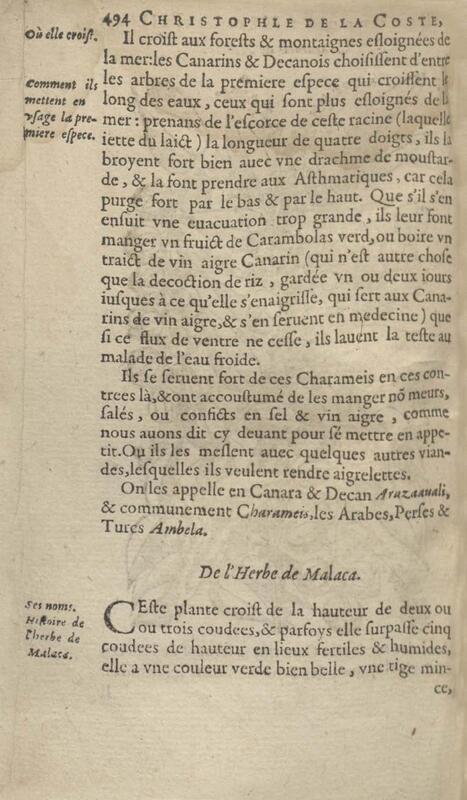 494 CHRISTOPHLE DE LA COSTE,
Où elle croist.
Il croiſt aux foreſts & montaignes eſloignées de
la mer:les Canarins & Decanois choiſiſſent d'entre
Comment ils
mettent en
vſage la pre-
miere eſpece.
les arbres de la premiere eſpece qui croiſſent le
long des eaux, ceux qui ſont plus eſloignés de la
mer : prenans de l'eſcorce de ceſte racine (laquelle
iette du laict) la longueur de quatre doigts, ils la
broyent fort bien auec vne drachme de mouſtar-
de, & la font prendre aux Aſthmatiques, car cela
purge fort par le bas & par le haut. Que s'il s'en
enſuit vne euacuation trop grande, ils leur font
manger vn fruict de Carambolas verd, ou boire vn
traict de vin aigre Canarin (qui n'eſt autre choſe
que la decoction de riz, gardée vn ou deux iours
iuſques à ce qu'elle s'enaigriſſe, qui ſert aux Cana-
rins de vin aigre,& s'en ſeruent en medecine) que
ſi ce flux de ventre ne ceſſe, ils lauent la teſte au
malade de l'eau froide.
Ils ſe ſeruent fort de ces Charameis en ces con-
trees là,&ont accouſtumé de les manger nõ meurs,
ſalés, ou conficts en ſel & vin aigre, comme
nous auons dit cy deuant pour ſé mettre en appe-
tit.Ou ils les meſlent auec quelques autres vian-
des,leſquelles ils veulent rendre aigrelettes.
On les appelle en Canara & Decan Aruzaauali,
& communement Charameis,les Arabes,Perſes &
Turcs Ambela.
De l'Herbe de Malaca.
Ses noms.
Hiſtoire de
l'herbe de
Malaca.
CEſte plante croiſt de la hauteur de deux ou
ou trois coudees,& parfoys elle ſurpaſſe cinq
coudees de hauteur en lieux fertiles & humides,
elle a vne couleur verde bien belle, vne tige min-
ce,